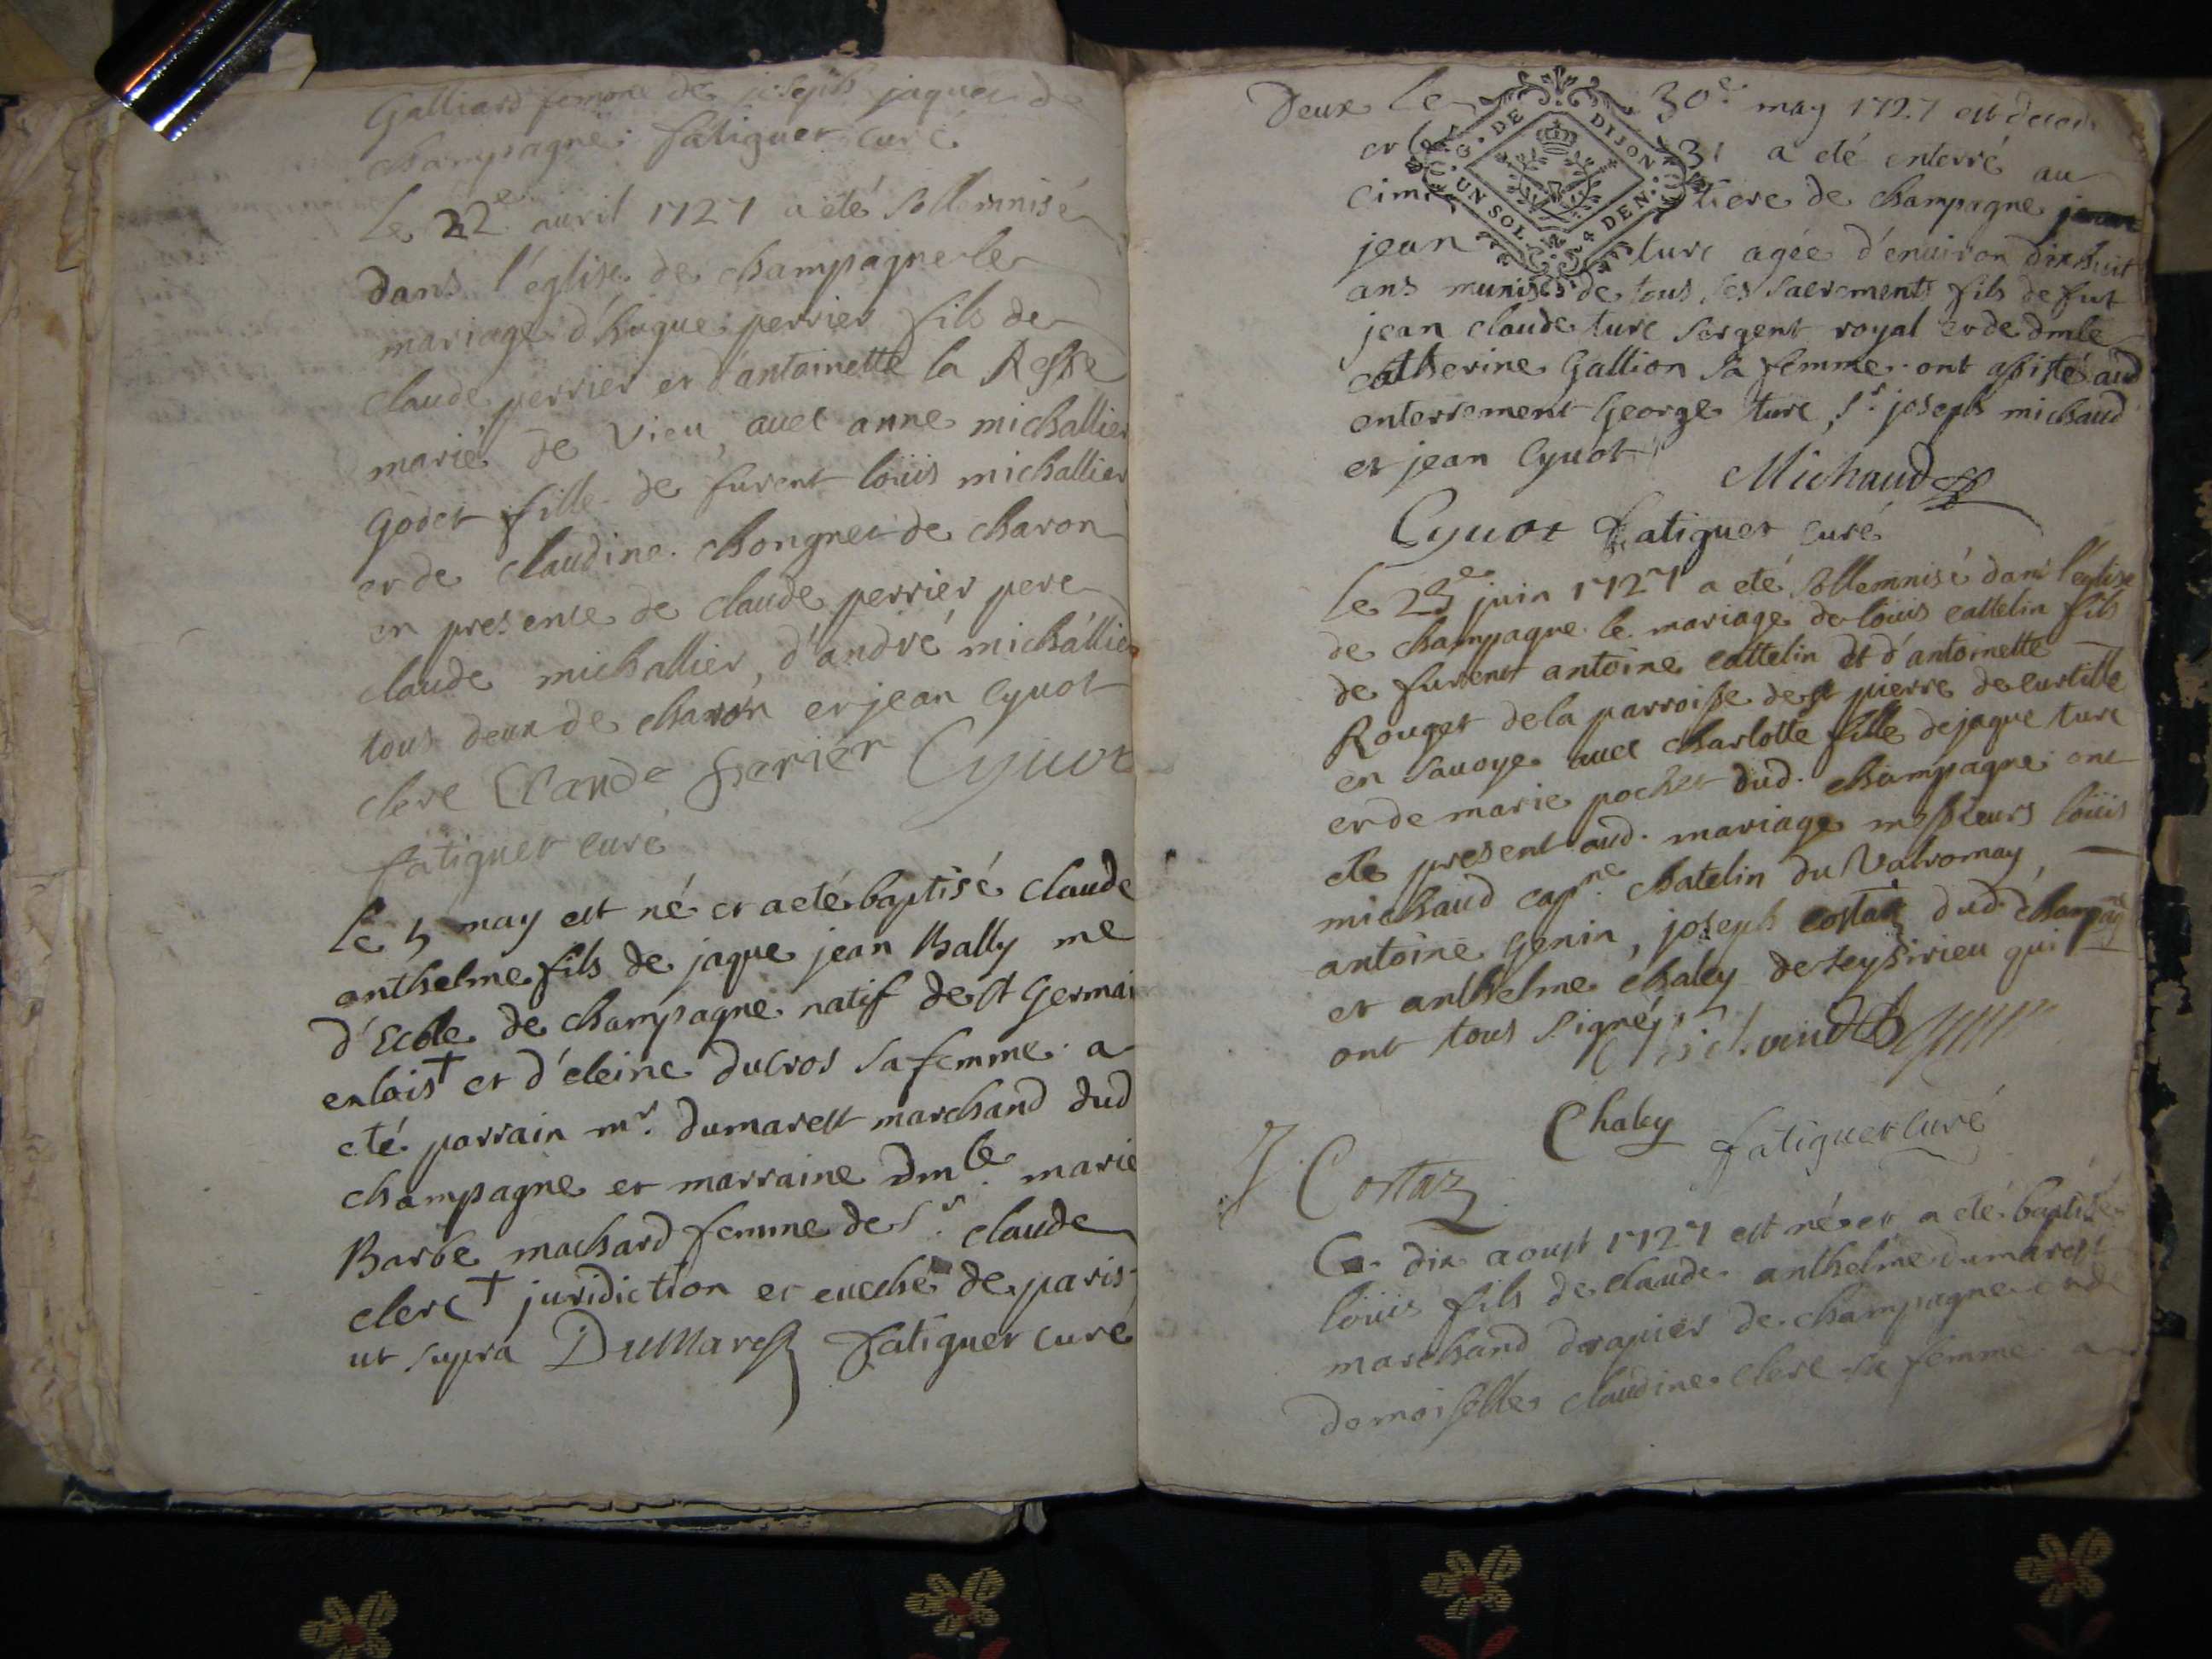 Galliard femme de joseph jaques de
champagne fatiguet curé
le 22e avril 1727 a eté sollemnisé
dans l'eglise de champagne le
mariage d'hugue perrier fils de
claude perrier et d'antoinette la
marié de vieu, avec anne michallier
godet fille de furent loüis michallier
et de claudine chongnet de charon
en presence de claude perrier pere
claude michallier, d'andré michallier
tous deux de charon et jean Cyvot
clerc Claude perier Cyuot
fatiguet curé
le 5 may est né et a eté baptisé claude
anthelme fils de jaque jean Bally me
d'Ecole de champagne natif de st Germai
enlois† et d'eleine ducros sa femme a
eté parrain mr. dumarest marchand dud
champagne et marraine dmle. marie
Barbe machard femme de sr. claude
clerc † juridiction et eveché de paris
ut supra DuMarest fatiguet curé
Deux le 30e may 1727 est deced
et le 31 a eté enterré au
cim tiere de champagne
jean turc agée d'enviren dixhuit
ans munis de tous ses sacrements fils de fut
jean claude turc sergent royal et de dmle
catherine Gallion sa femme ont assisté aud
enterrement George turc, sr. joseph michaud
et jean Cyvot
Michaud
Cyuot fatiguet curé
G. DE DIJON
UN SOL 4 DEN.
le 23e juin 1727 a eté sollemnisé dans l'eglise
de champagne le mariage de loüis cattelin fils
de furent antoine cattelin et d'antoinette
Rouget de la parroisse de st pierre de curtille
en savoye avec charlotte fille de jaque turc
et de marie pochet dud. champagne ont
ete present aud. mariage messieurs loüis
michaud capne. chatelin du Valromay,
antoine Genin, joseph costaz dud. champagne
et anthelme chaley de teysirieu qui
ont tous signés
Michaud
Chaley fatiguet curé
J Cortaz
Ce dix aoust 1727 est né et a eté baptisé
loüis fils de claude anthelme dumarest
marchand drapier de champagne et de
demoiselle claudine clerc sa femme a